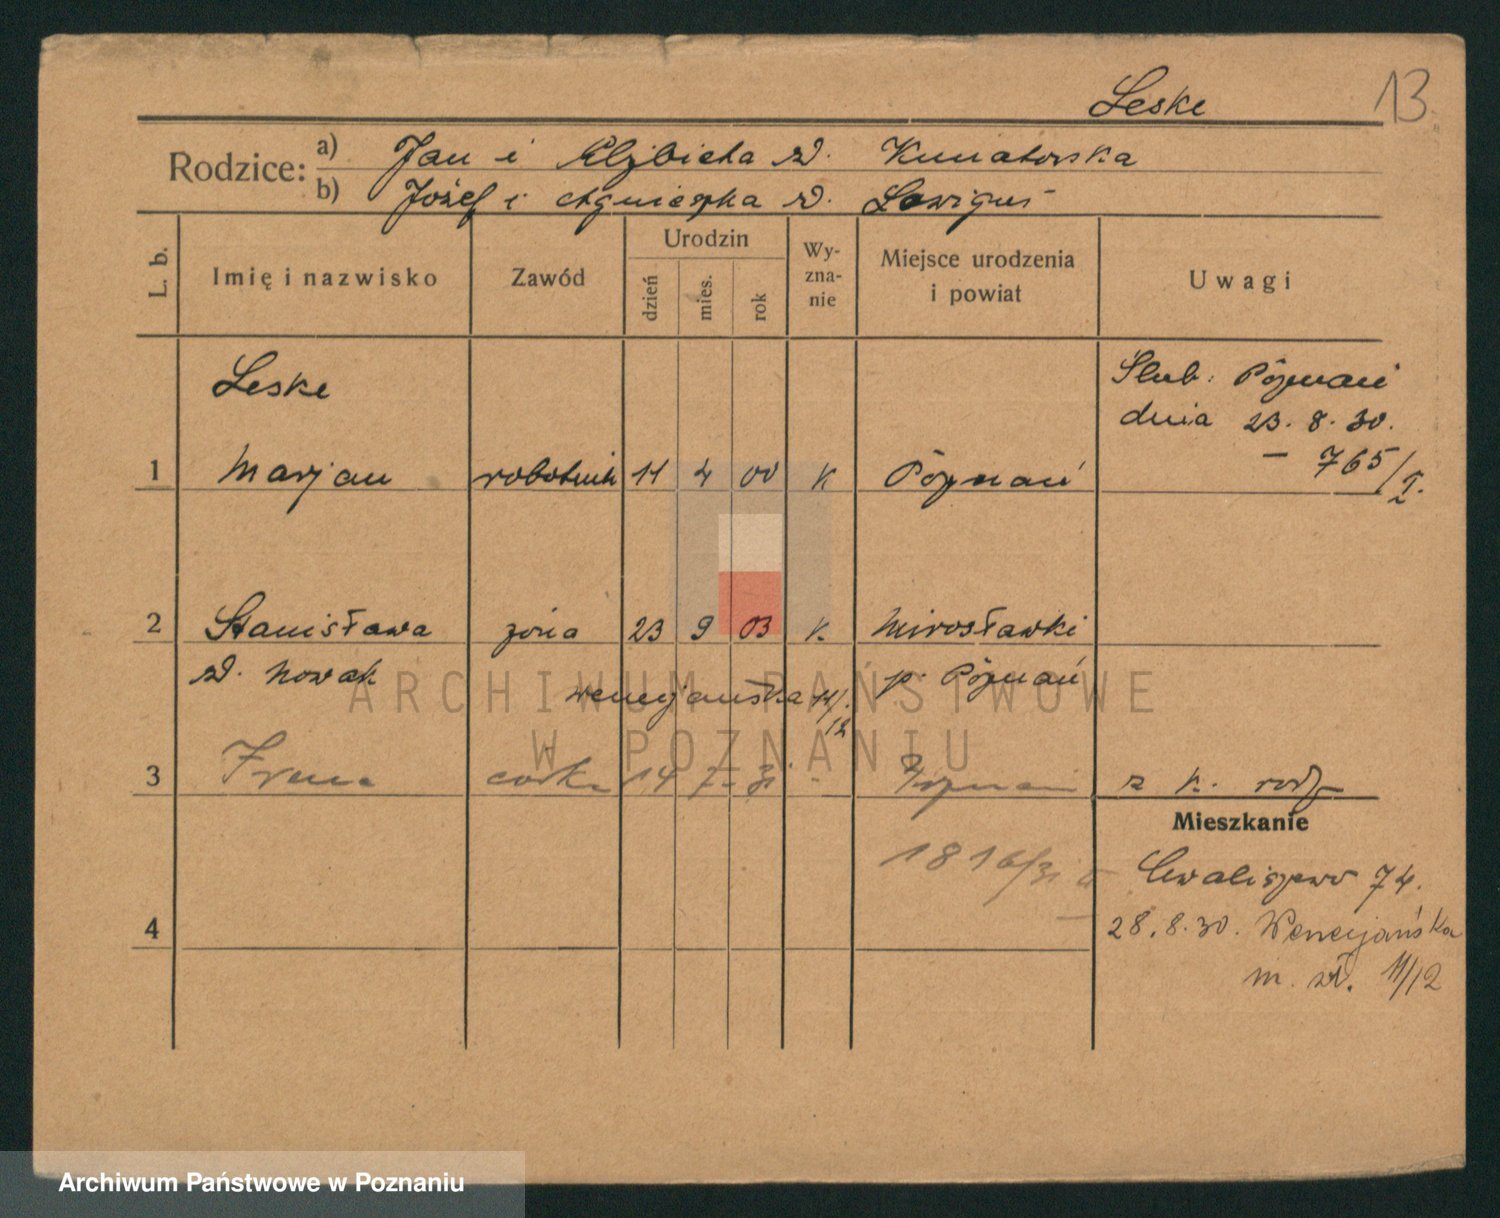 Leske 13
Rodzice:
a) Jan i Elżbieta zd. Kunatowska
b) Józef i Agnieszka zd.
L. b. Imię i nazwisko Zawód Urodzin Wy-zna-nie Miejsce urodzenia i powiat Uwagi
dzień mies. rok
Leske Ślub: Poznań
dnia 23. 8. 30.
– 765/I.
1 Marjan robotnik 11 4 00 K Poznań
2 Stanisława żona 23 9 03 K. Mirosławki
zd. Nowak p. Poznań
wenecjańska 11/12
3 Irena córka 14 7 31 - Poznań z k. rodz
1816/31
Mieszkanie
Chwaliszewo 74.
4
28. 8. 30. Wenecjańska
m. wł. 11/12
ARCHIWUM PAŃSTWOWE
W POZNANIU
Archiwum Państwowe w Poznaniu